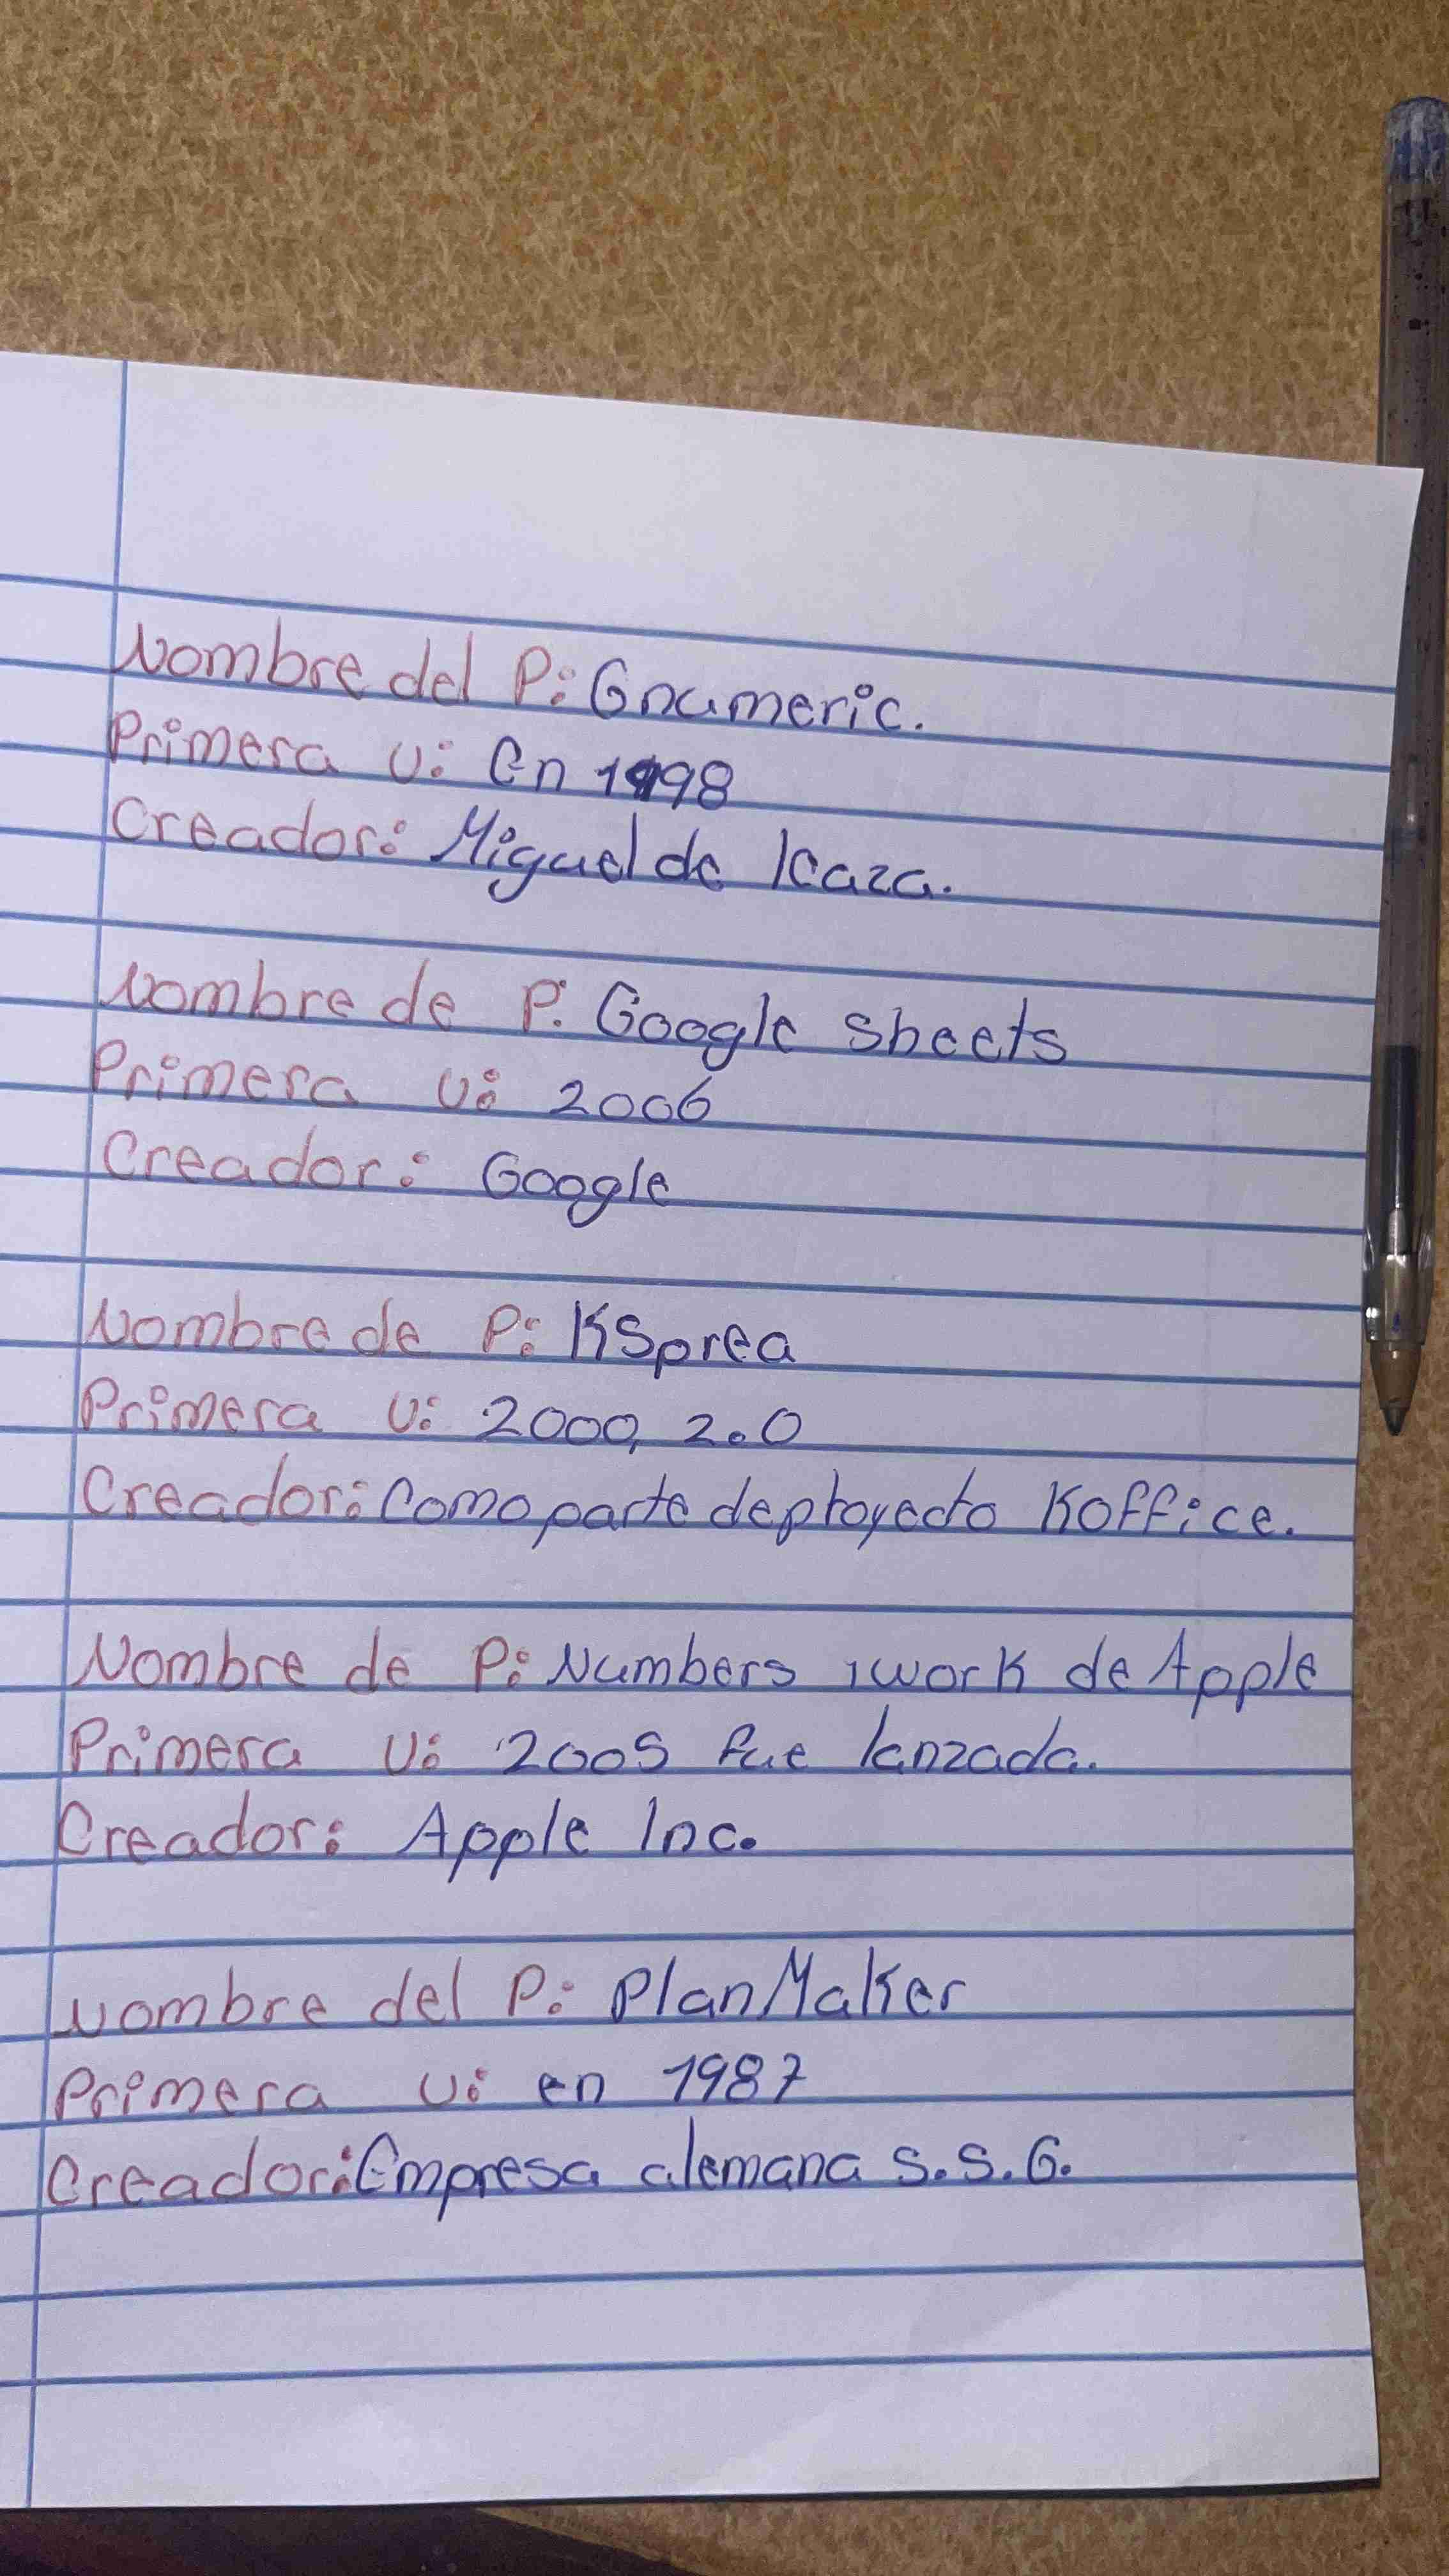 Nombre del P: Gnumeric.
Primera V: En 1998
Creador: Miguel de Icaza.
Nombre de P: Google sheets
Primera V: 2006
Creador: Google
Nombre de P: KSprea
Primera V: 2000, 2.0
Creador: Como parte de ployecto Koffice.
Nombre de P: Numbers iwork de Apple
Primera V: 2005 fue lanzada.
Creador: Apple Inc.
Nombre del P: PlanMaker
Primera V: en 1987
Creador: Empresa alemana S.S.G.